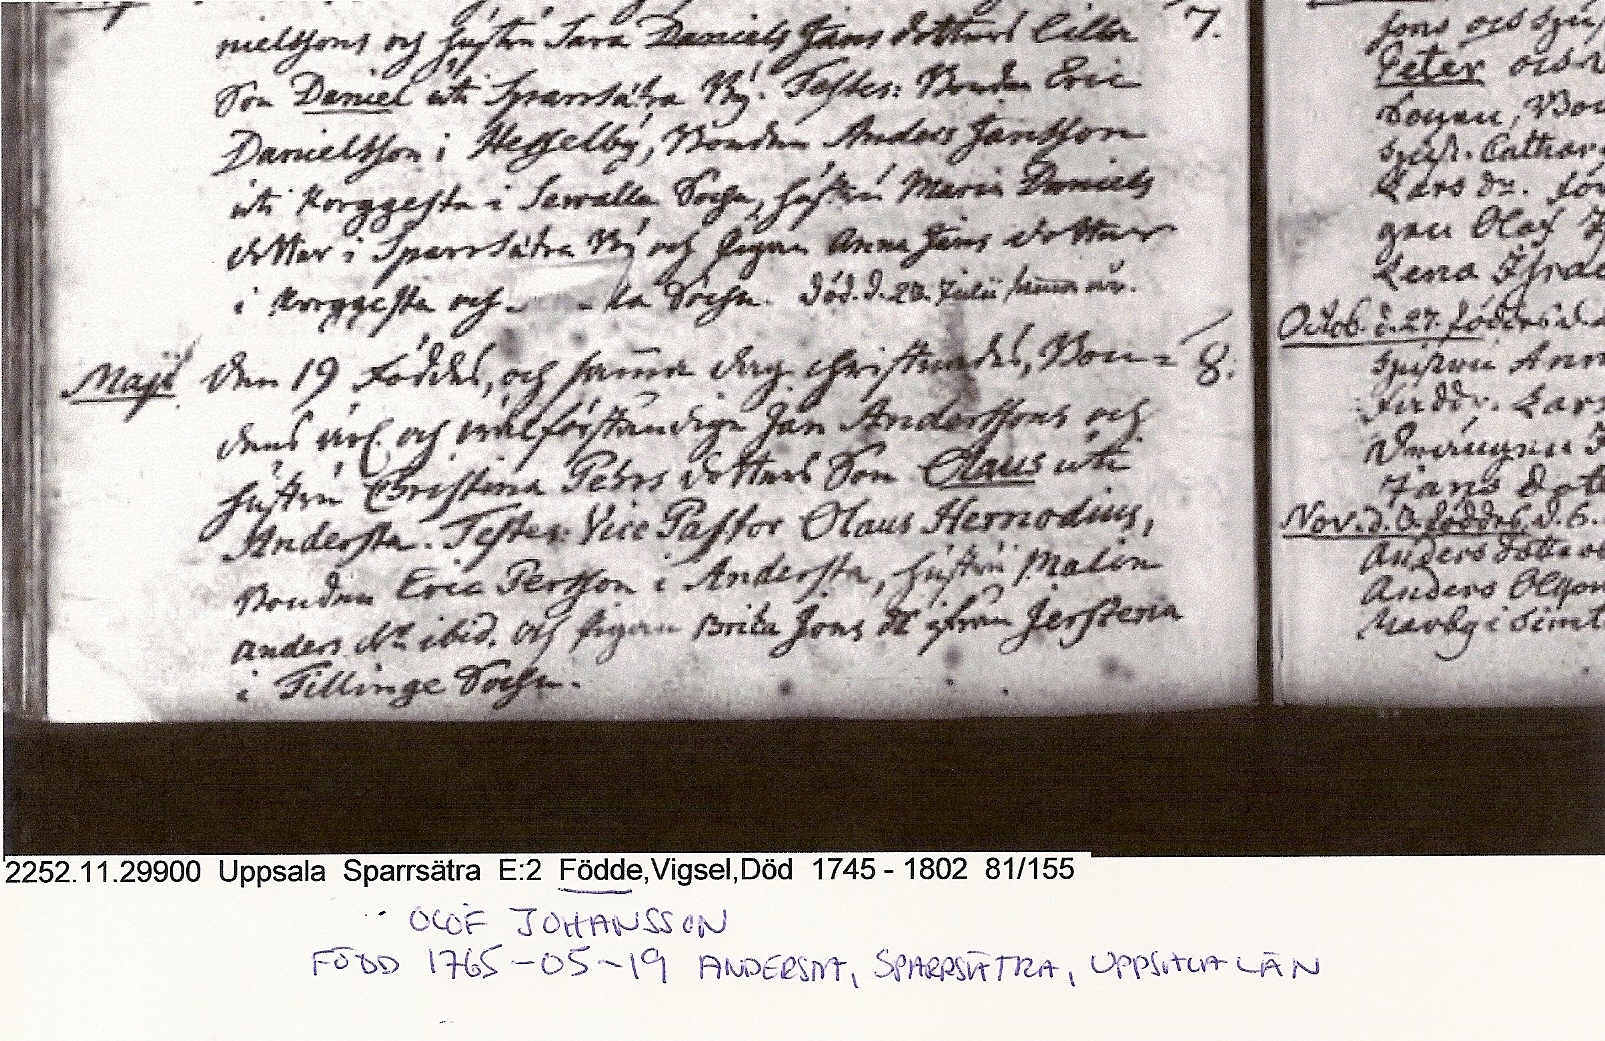 nielssons och hustru Sara Daniels Jans dotters lilla 7.
Son Daniel uti Sparrsätra By. Testes: Bonden Eric
Danielsson i Hesselby, Bonden Anders Jansson
uti Korggesta i Sewalla Sochn, hustru Maria Daniels
dotter i Sparrsätra By och pigan Anna Jans dotter
i Korggesta och la Sochn. död. d. 20. Julii samma år.
Maji den 19 föddes, och samma dag christnades, Bon= 8.
dens ärl. och wälförståndige Jan Anderssons och
hustru Christina Pehrs dotters Son Olaus uti
Andersta. Testes: Vice Pastor Olaus Hernodius,
Bonden Eric Persson i Andersta, hustru Malin
anders dr ibid. och pigan Brita Jons dr ifrån Jerstena
i Tillinge Sochn.
sons och hu
Peter och
Bo
Cathar
Lars dr.
gen Olof
Lena Isra
Octob. d. 27. föddes d.
hustru Ann
Lars
Jans dot
Nov. d. 3. föddes, d. 6.
Anders dotter
Anders Olsson
2252.11.29900 Uppsala Sparrsätra E:2 Födde,Vigsel,Död 1745 - 1802 81/155
OLOF JOHANSSON
FÖDD 1765-05-19 ANDERSTA, SPARRSÄTRA, UPPSALA LÄN